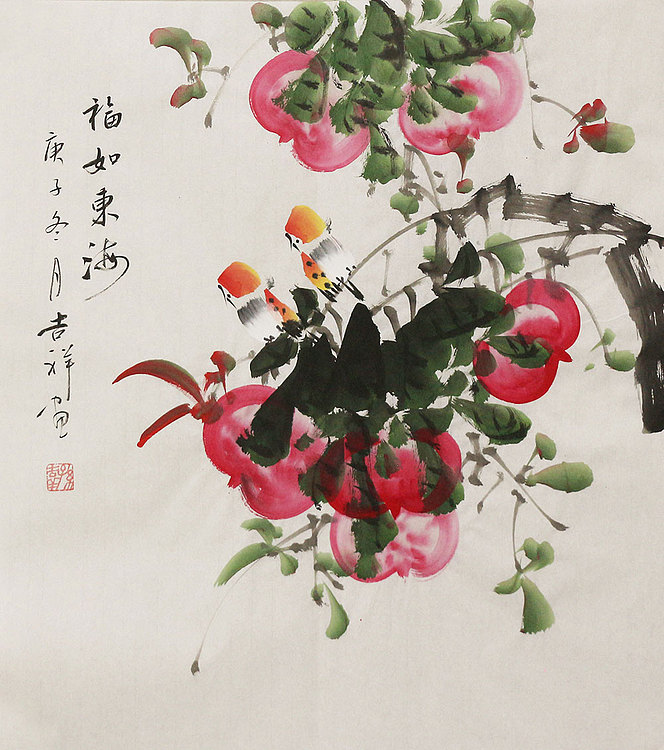 福如东海
庚子冬月吉祥画